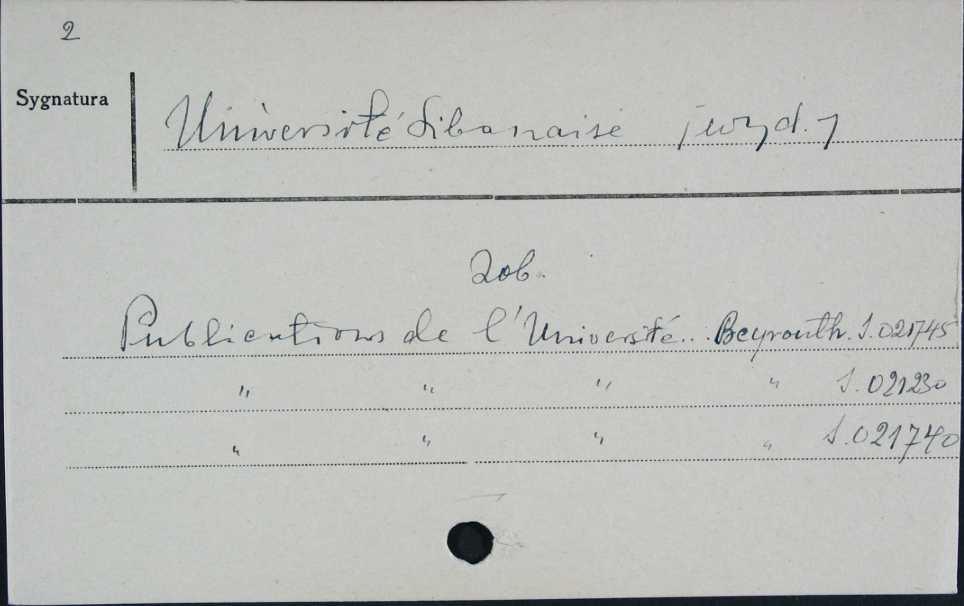 2
Sygnatura
Université Libanaise [wyd.]
Zob.
Publications de l'Université... Beyrouth. S.021745
" " " " S.021230
" " " " S.021740